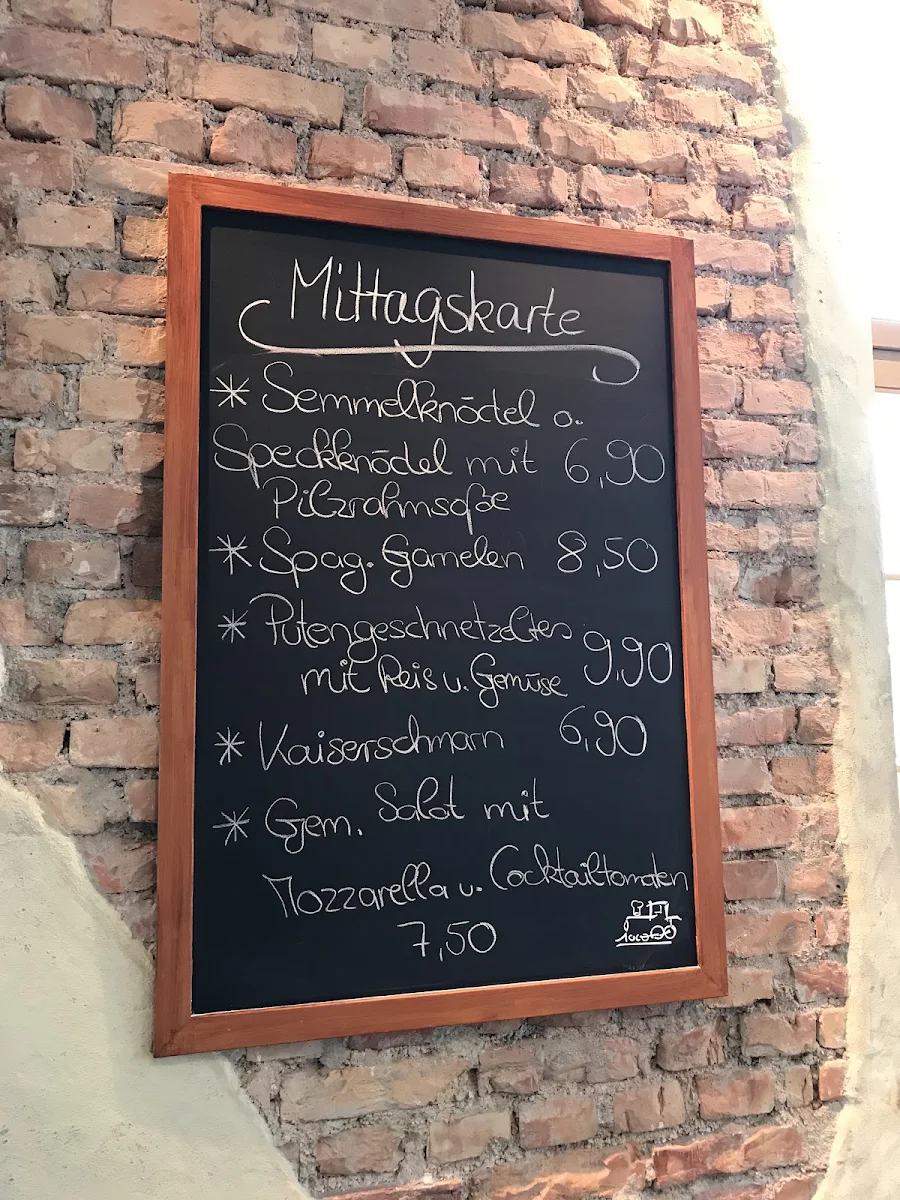 Mittagskarte
* Semmelknödel o.
Speckknödel mit 6,90
Pilzrahmsoße
* Spag. Gamelen 8,50
* Putengeschnetzeltes
mit Reis u. Gemüse 9,90
* Kaiserschmarn 6,90
* Gem. Salat mit
Mozzarella u. Cocktailtomaten
7,50